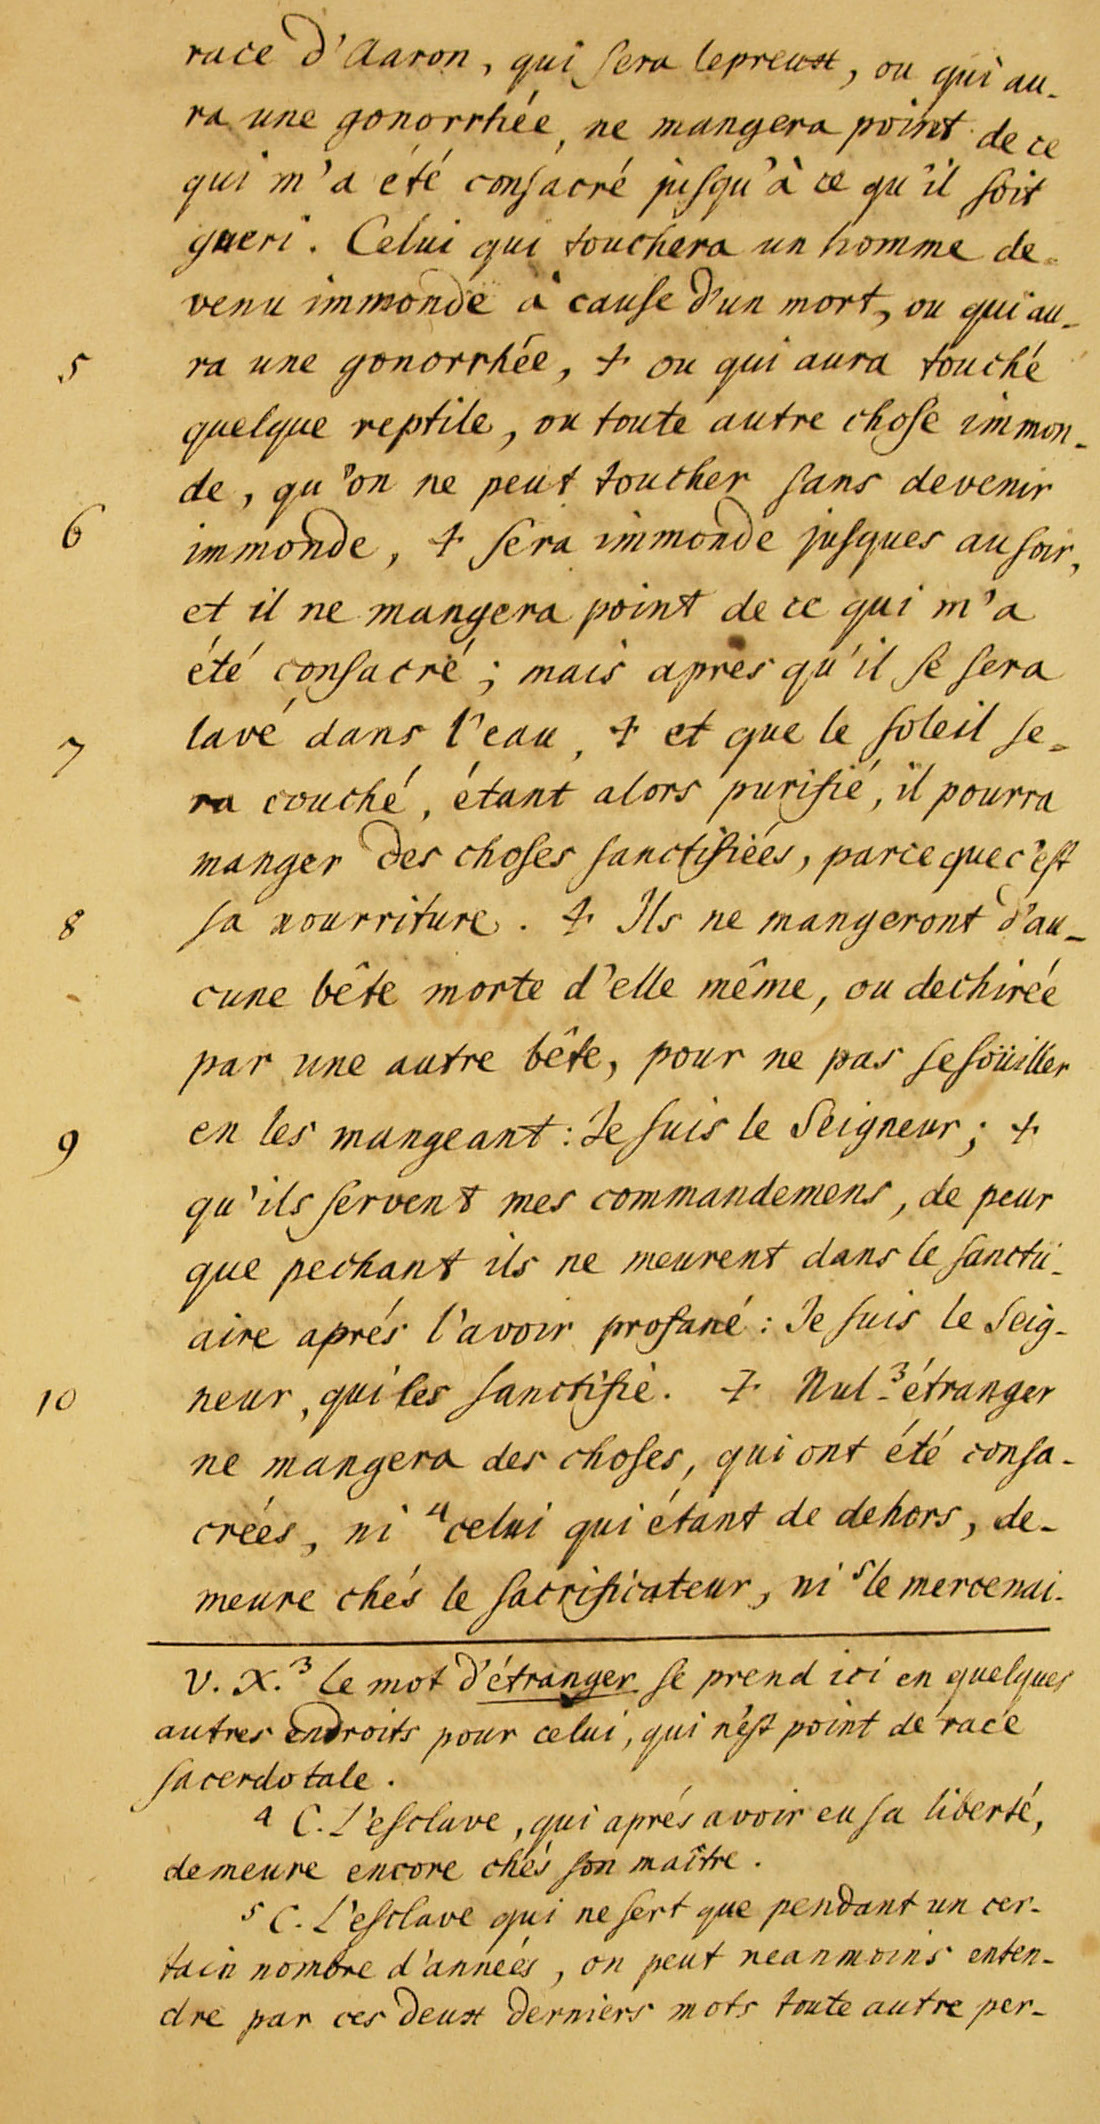 race d'Aaron, qui sera lepreux, ou qui au-
ra une gonorrhée, ne mangera point de ce
qui m'a été consacré jusqu'à ce qu'il soit
gueri. Celui qui touchera un homme de-
venu immonde à cause d'un mort, ou qui au-
5 ra une gonorrhée, + ou qui aura touché
quelque reptile, ou toute autre chose immon-
de, qu'on ne peut toucher sans devenir
6 immonde, + sera immonde jusques au soir,
et il ne mangera point de ce qui m'a
été consacré; mais apres qu'il se sera
7 lavé dans l'eau, + et que le soleil se-
ra couché, étant alors purifié, il pourra
manger des choses sanctifiées, parce que c'est
8 sa nourriture. + Ils ne mangeront d'au-
cune bête morte d'elle même, ou dechirée
par une autre bête, pour ne pas se soüiller
9 en les mangeant: Je suis le Seigneur; +
qu'ils servent mes commandemens, de peur
que pechant ils ne meurent dans le sanctu-
aire aprés l'avoir profané: Je suis le Seig-
10 neur, qui les sanctifie. + Nul 3 étranger
ne mangera des choses, qui ont été consa-
crées, ni 4 celui qui étant de dehors, de-
meure chés le sacrificateur, ni 5 le mercenai-
V. X. 3 Le mot d'étranger se prend ici en quelques
autres endroits pour celui, qui n'est point de race
sacerdotale.
4 C. L'esclave, qui aprés avoir eu sa liberté,
demeure encore chés son maître.
5 C. L'esclave qui ne sert que pendant un cer-
tain nombre d'années, on peut neanmoins enten-
dre par ces deux derniers mots toute autre per-